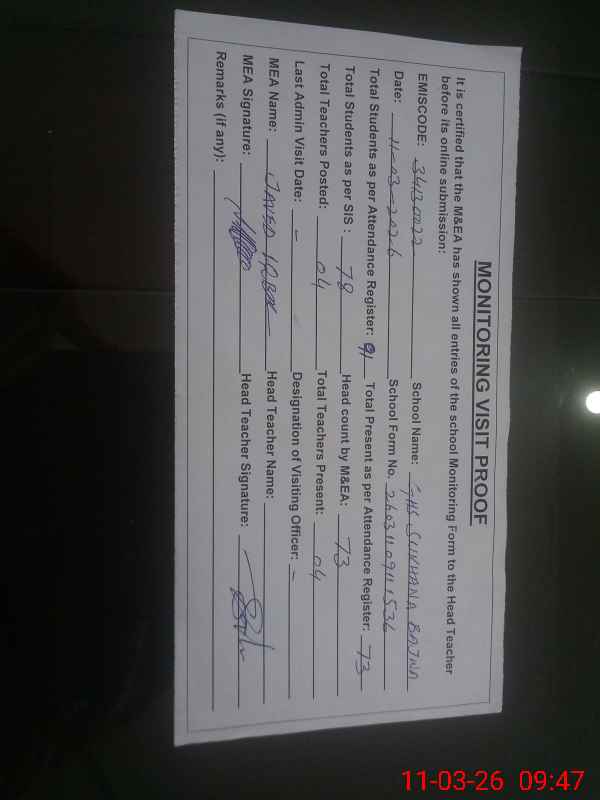 MONITORING VISIT PROOF
It is certified that the M&EA has shown all entries of the school Monitoring Form to the Head Teacher
before its online submission:
EMISCODE: 34130022 School Name: GHS SUKHANA BAJWA
Date: 11-03-2026 School Form No. 2603110911536
Total Students as per Attendance Register: 91 Total Present as per Attendance Register: 73
Total Students as per SIS : 78 Head count by M&EA: 73
Total Teachers Posted: 04 Total Teachers Present: 04
Last Admin Visit Date: - Designation of Visiting Officer: -
MEA Name: JAVED IQBAL Head Teacher Name:
MEA Signature: Head Teacher Signature:
Remarks (if any):
11-03-26 09:47